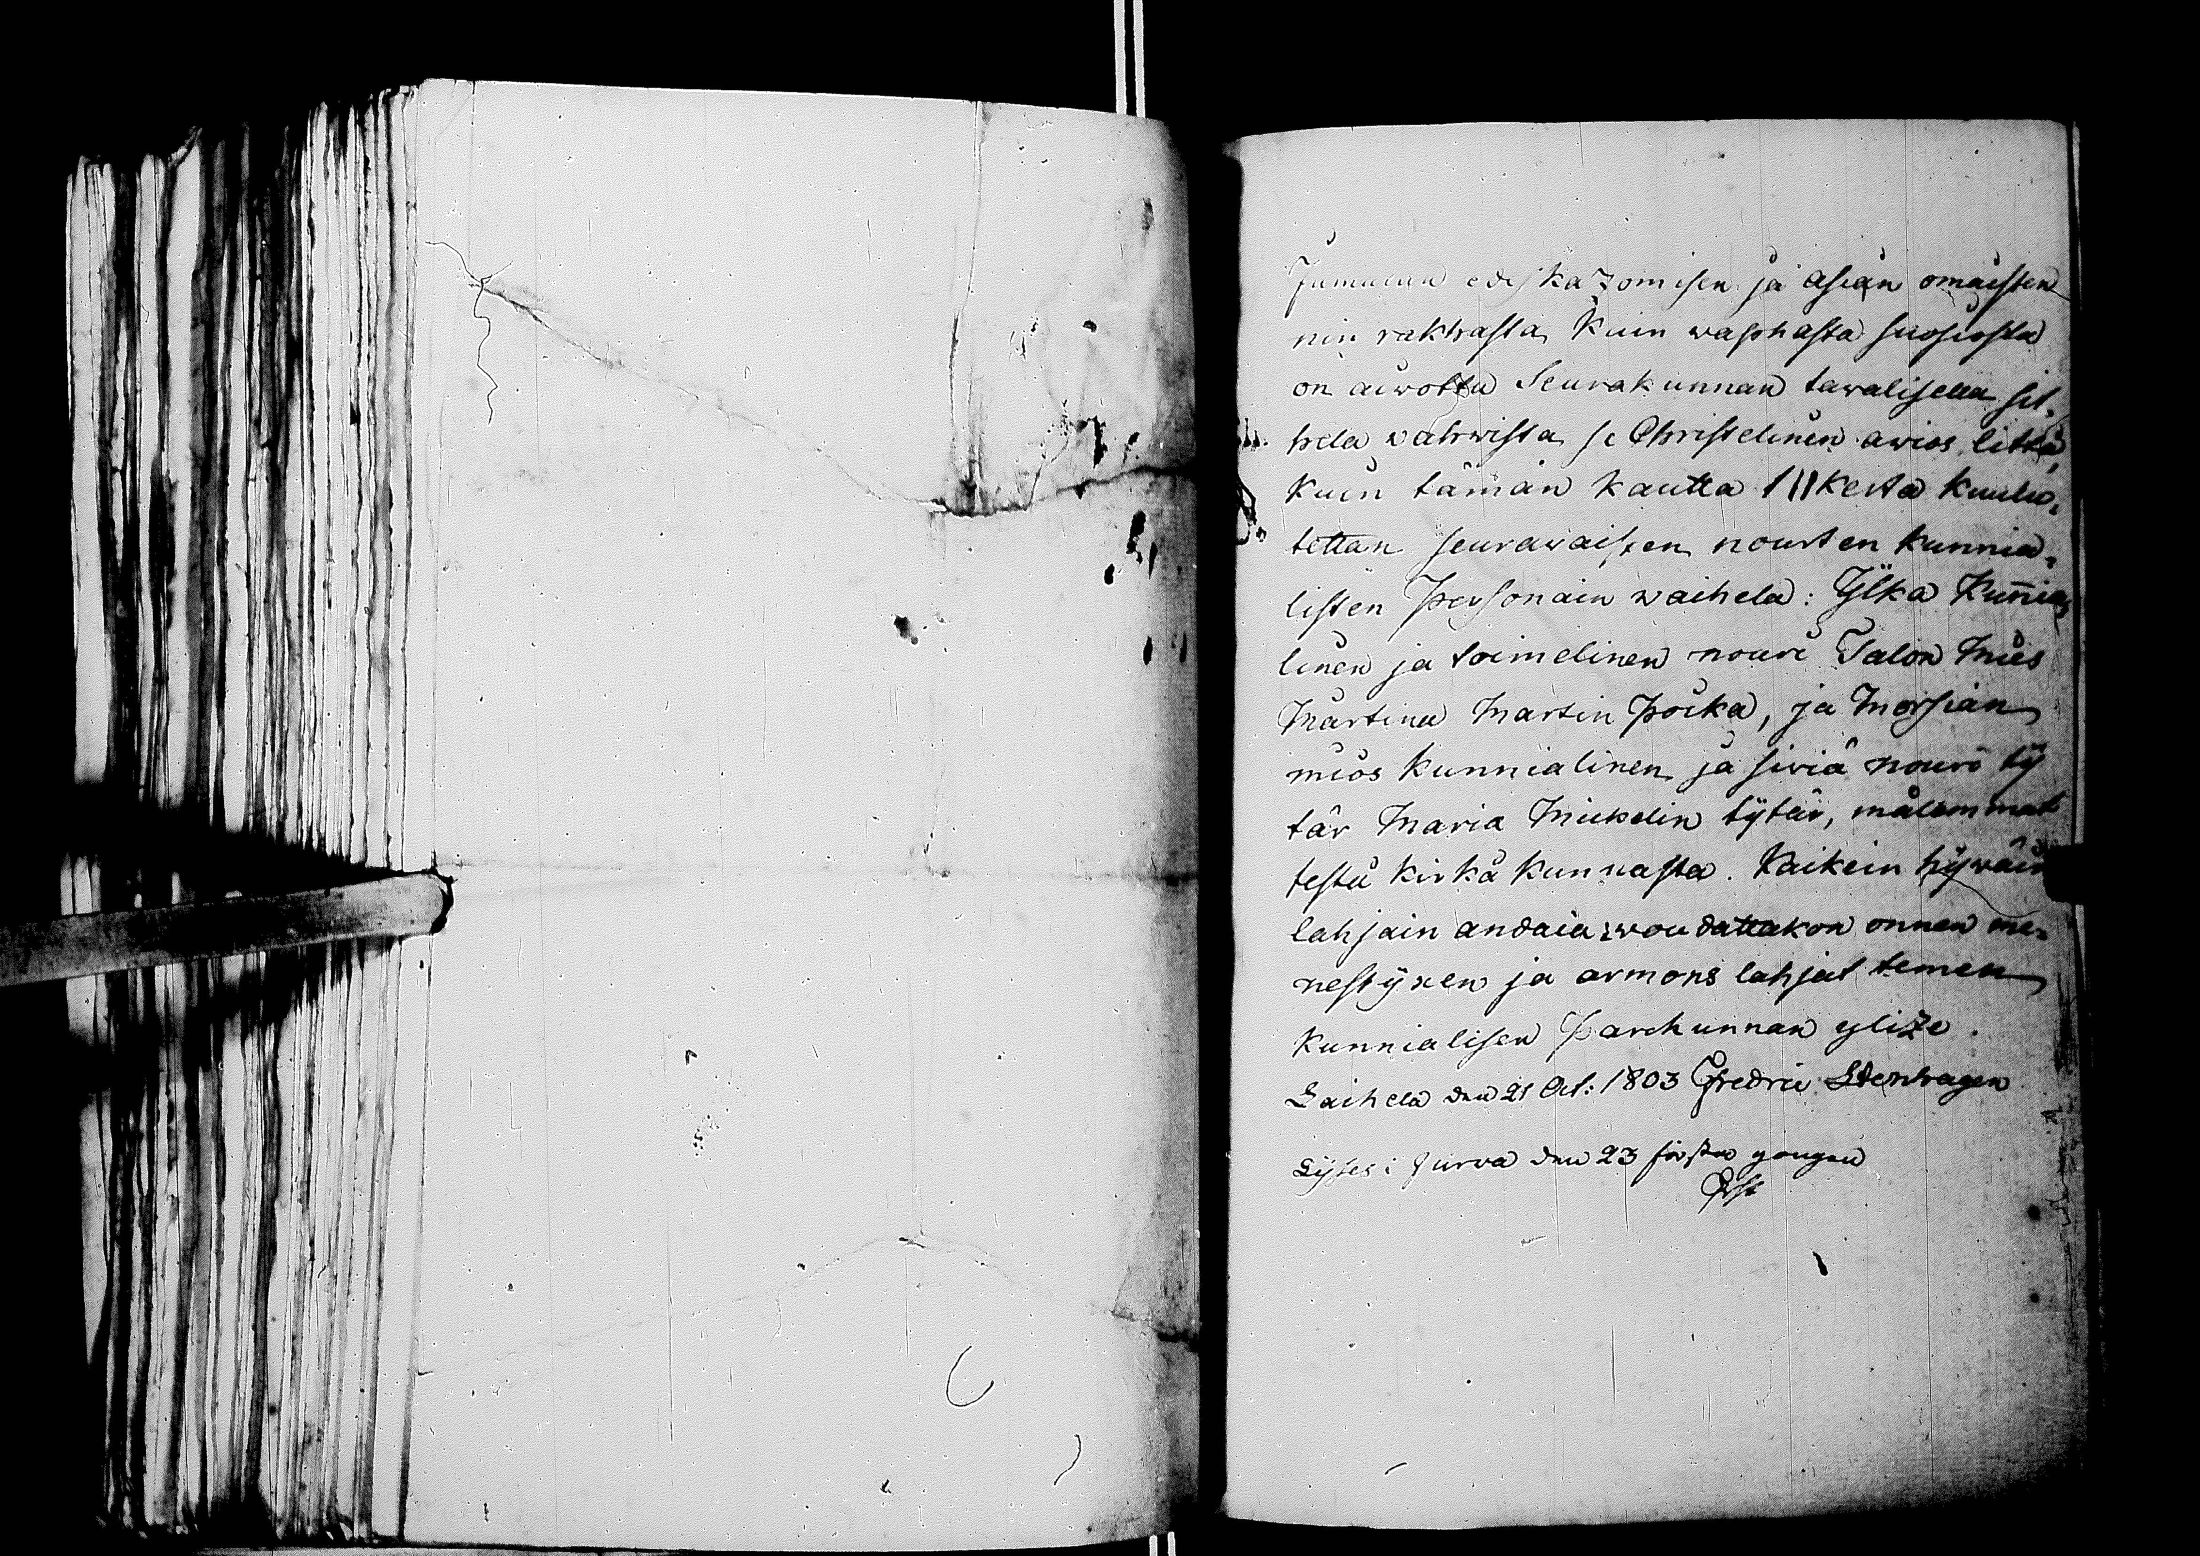 Jumalan edeskazomisen ja asian omaisten
nin rakhasta kuin wapahasta suosiosta
on aiwottu Seurakunnan tawalisella sil-
hela wahwista se Christelinen awios litto,
kuin tämän kautta III kerta kuulu-
tettan seurawaisten nourten kunnia-
listen Personain waihela: Ylkä Kun̄ia-
linen ja toimelinen nouri Talon Mies
Martina Martin Poika, ja Morsian
miös kunnialinen ja siviä nouri tÿ
tär Maria Mickelin tÿtär, målemmat
testä kirkå kunnasta. Kaikein hÿwäin
lahjain andaia woudattakon onnen me-
nestÿxen ja armons lahjat temen
kunnialisen Parckunnan ylize.
Laihela den 21 Oct: 1803 Fredric Stenhagen
Lÿses i Jurva den 23 första gongen